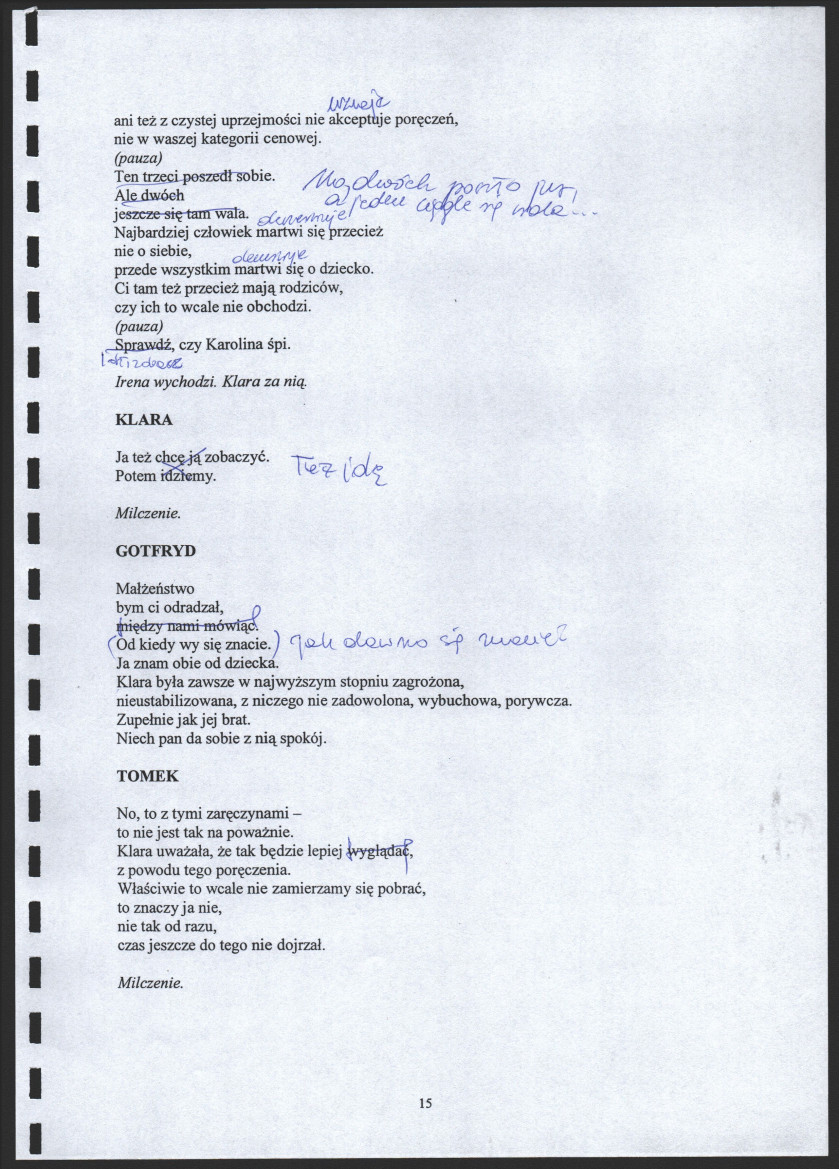 uznaje
ani też z czystej uprzejmości nie akceptuje poręczeń,
nie w waszej kategorii cenowej.
(pauza)
Ten trzeci poszedł sobie.
No, dwóch poszło już,
Ale dwóch
a jeden ciągle się wala...
jeszcze się tam wala. denerwuje
Najbardziej człowiek martwi się przecież
nie o siebie,
denerwuje
przede wszystkim martwi się o dziecko.
Ci tam też przecież mają rodziców,
czy ich to wcale nie obchodzi.
(pauza)
Sprawdź, czy Karolina śpi.
Idź zobacz
Irena wychodzi. Klara za nią.
KLARA
Ja też chcę ją zobaczyć.
Też idę
Potem idziemy.
Milczenie.
GOTFRYD
Małżeństwo
bym ci odradzał,
między nami mówiąc.
(Od kiedy wy się znacie.) jak dawno się znacie?
Ja znam obie od dziecka.
Klara była zawsze w najwyższym stopniu zagrożona,
nieustabilizowana, z niczego nie zadowolona, wybuchowa, porywcza.
Zupełnie jak jej brat.
Niech pan da sobie z nią spokój.
TOMEK
No, to z tymi zaręczynami –
to nie jest tak na poważnie.
Klara uważała, że tak będzie lepiej wyglądać,
z powodu tego poręczenia.
Właściwie to wcale nie zamierzamy się pobrać,
to znaczy ja nie,
nie tak od razu,
czas jeszcze do tego nie dojrzał.
Milczenie.
15